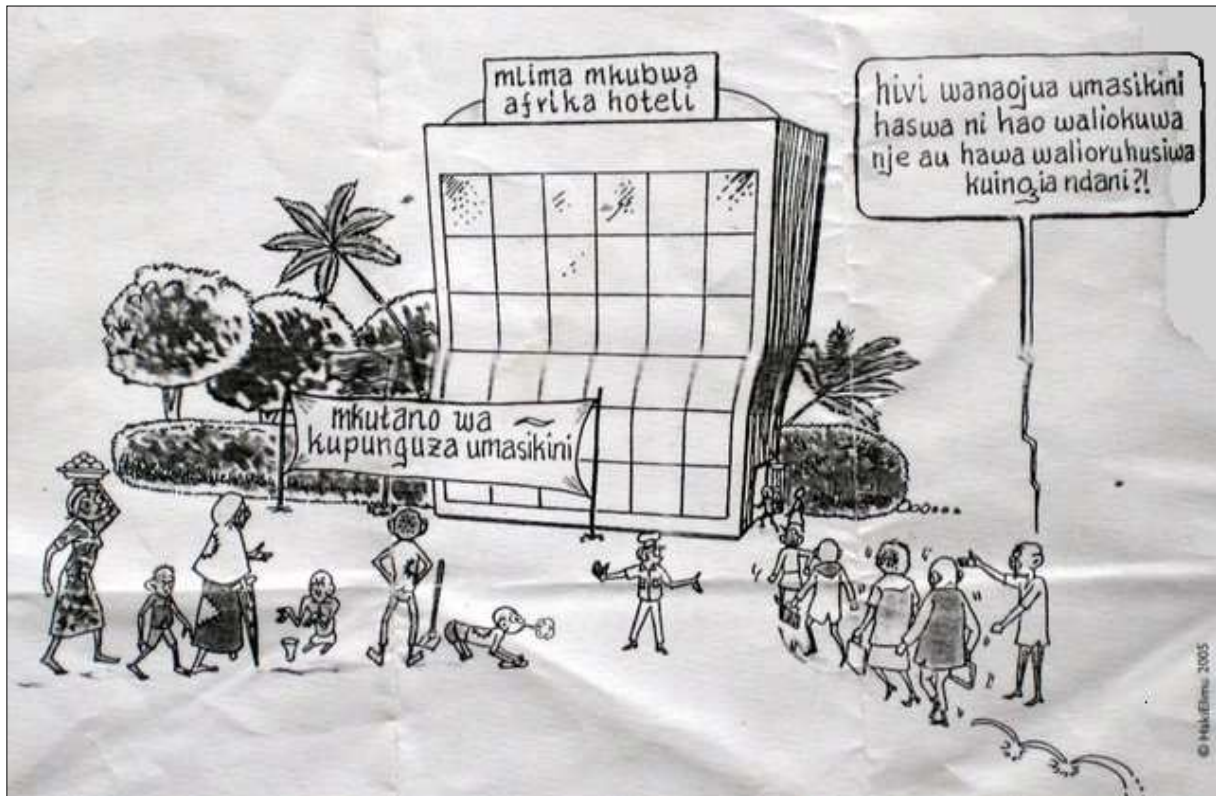 mlima mkubwa
afrika hoteli
hivi wanaojua umasikini
haswa ni hao waliokuwa
nje au hawa walioruhusiwa
kuingia ndani?!
mkutano wa
kupunguza umasikini
© HakiElimu 2005